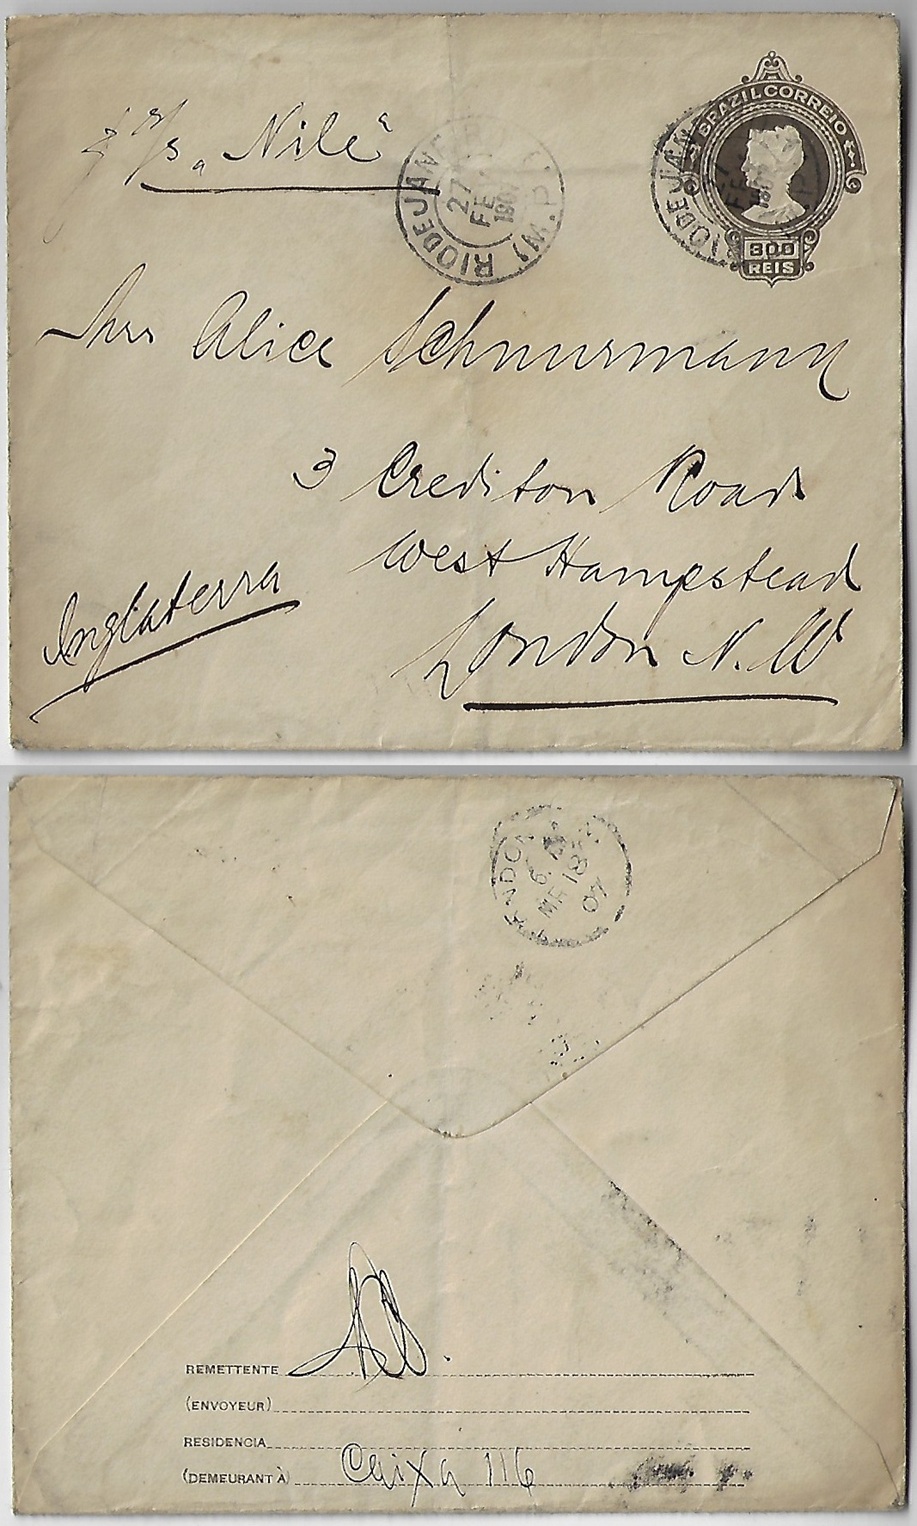 p s/s "Nile"
RIO DE JANEIRO
27
FEV
1907
BRAZIL CORREIO
300
REIS
Mrs Alice Schnurmann
3 Crediton Road
West Hampstead
London N.W
Inglaterra
LONDON
MR 18
07
REMETTENTE
(ENVOYEUR)
RESIDENCIA
(DEMEURANT À) Caixa 116